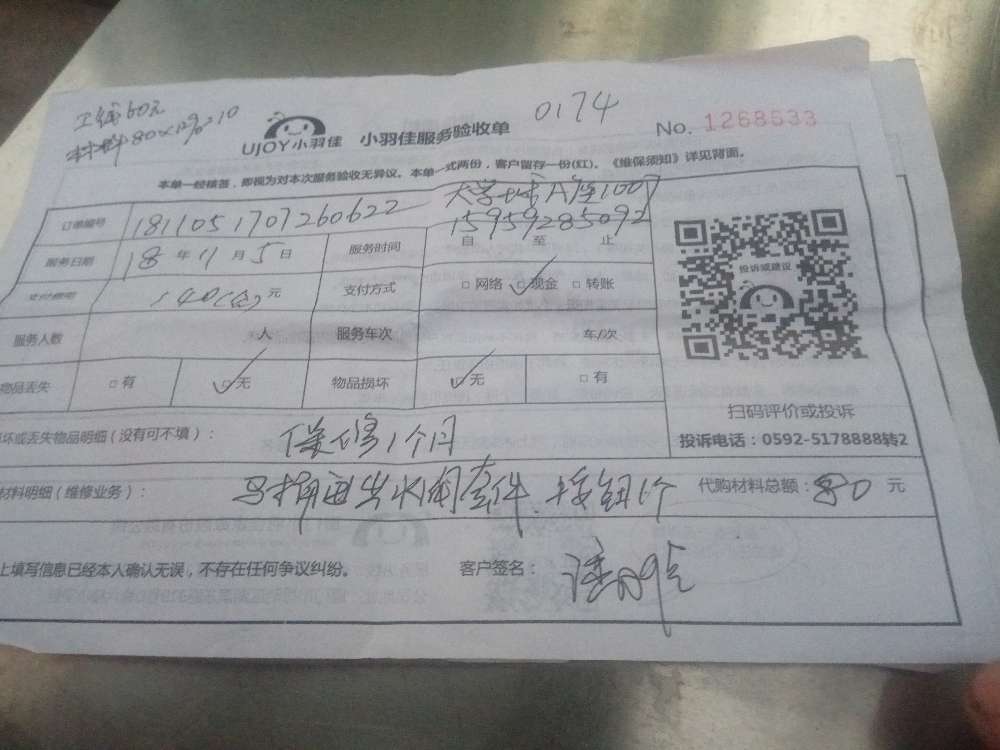 工钱60元
材料80×12%=10
0174
UJOY小羽佳 小羽佳服务验收单
No. 1268633
本单一经核签，即视为对本次服务验收无异议。本单一式两份，客户留存一份(红)。《维保须知》详见背面。
大学城A座1007
订单编号 1811051707260622 15959285092
服务日期 18 年 11 月 5 日 服务时间 自 至 止
140 元 支付方式 □ 网络 ☑ 现金 □ 转账
服务人数 人 服务车次 车/次
物品丢失 □ 有 ☑ 无 物品损坏 ☑ 无 □ 有
投诉或建议
扫码评价或投诉
投诉电话：0592-5178888转2
坏或丢失物品明细（没有可不填）： 保修1个月
材料明细（维修业务）： 马桶进出水阀套件、按钮1个 代购材料总额：80 元
上填写信息已经本人确认无误，不存在任何争议纠纷。 客户签名：